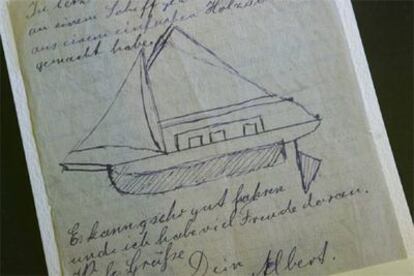 In
an einem Schiff ge
aus einem einfachen Holz
gemacht habe.
Es kann sehr gut fahren
und ich habe viel Freude daran.
Viele Grüße
Dein Albert.